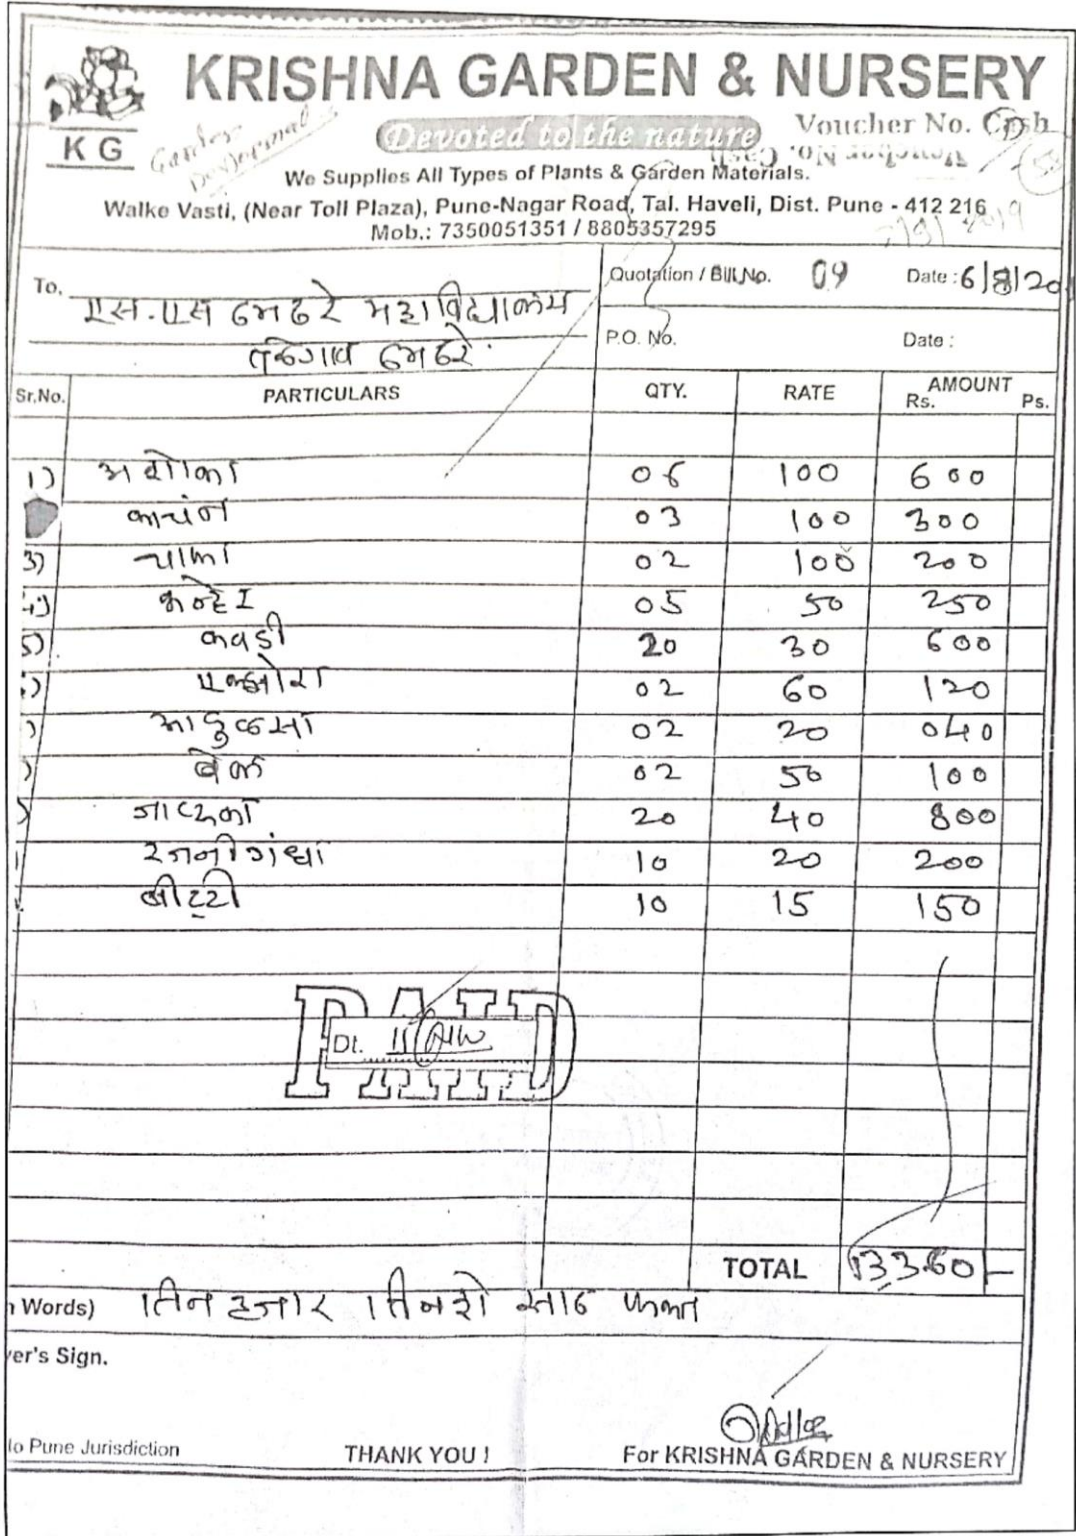 KRISHNA GARDEN & NURSERY
KG
Devoted to the nature
Voucher No. Cash
Voucher No. Cash
We Supplies All Types of Plants & Garden Materials.
Walke Vasti, (Near Toll Plaza), Pune-Nagar Road, Tal. Haveli, Dist. Pune - 412 216
Mob.: 7350051351 / 8805357295
To, एस.एस ढमढेरे महाविद्यालय
तळेगाव ढमढेरे
Quotation / Bill No. 09 Date : 6/8/20
P.O. No. Date :
Sr.No. PARTICULARS QTY. RATE AMOUNT Rs. Ps.
1) अशोका 06 100 600
कांचन 03 100 300
3) चाफा 02 100 200
4) 05 50 250
5) कवडी 20 30 600
एक्झोरा 02 60 120
02 20 040
बेल 02 50 100
20 40 800
रजनीगंधा 10 20 200
10 15 150
PAID
Dt.
TOTAL 3360/-
Words) तिन हजार तिनशे साठ फक्त
er's Sign.
to Pune Jurisdiction THANK YOU ! For KRISHNA GARDEN & NURSERY